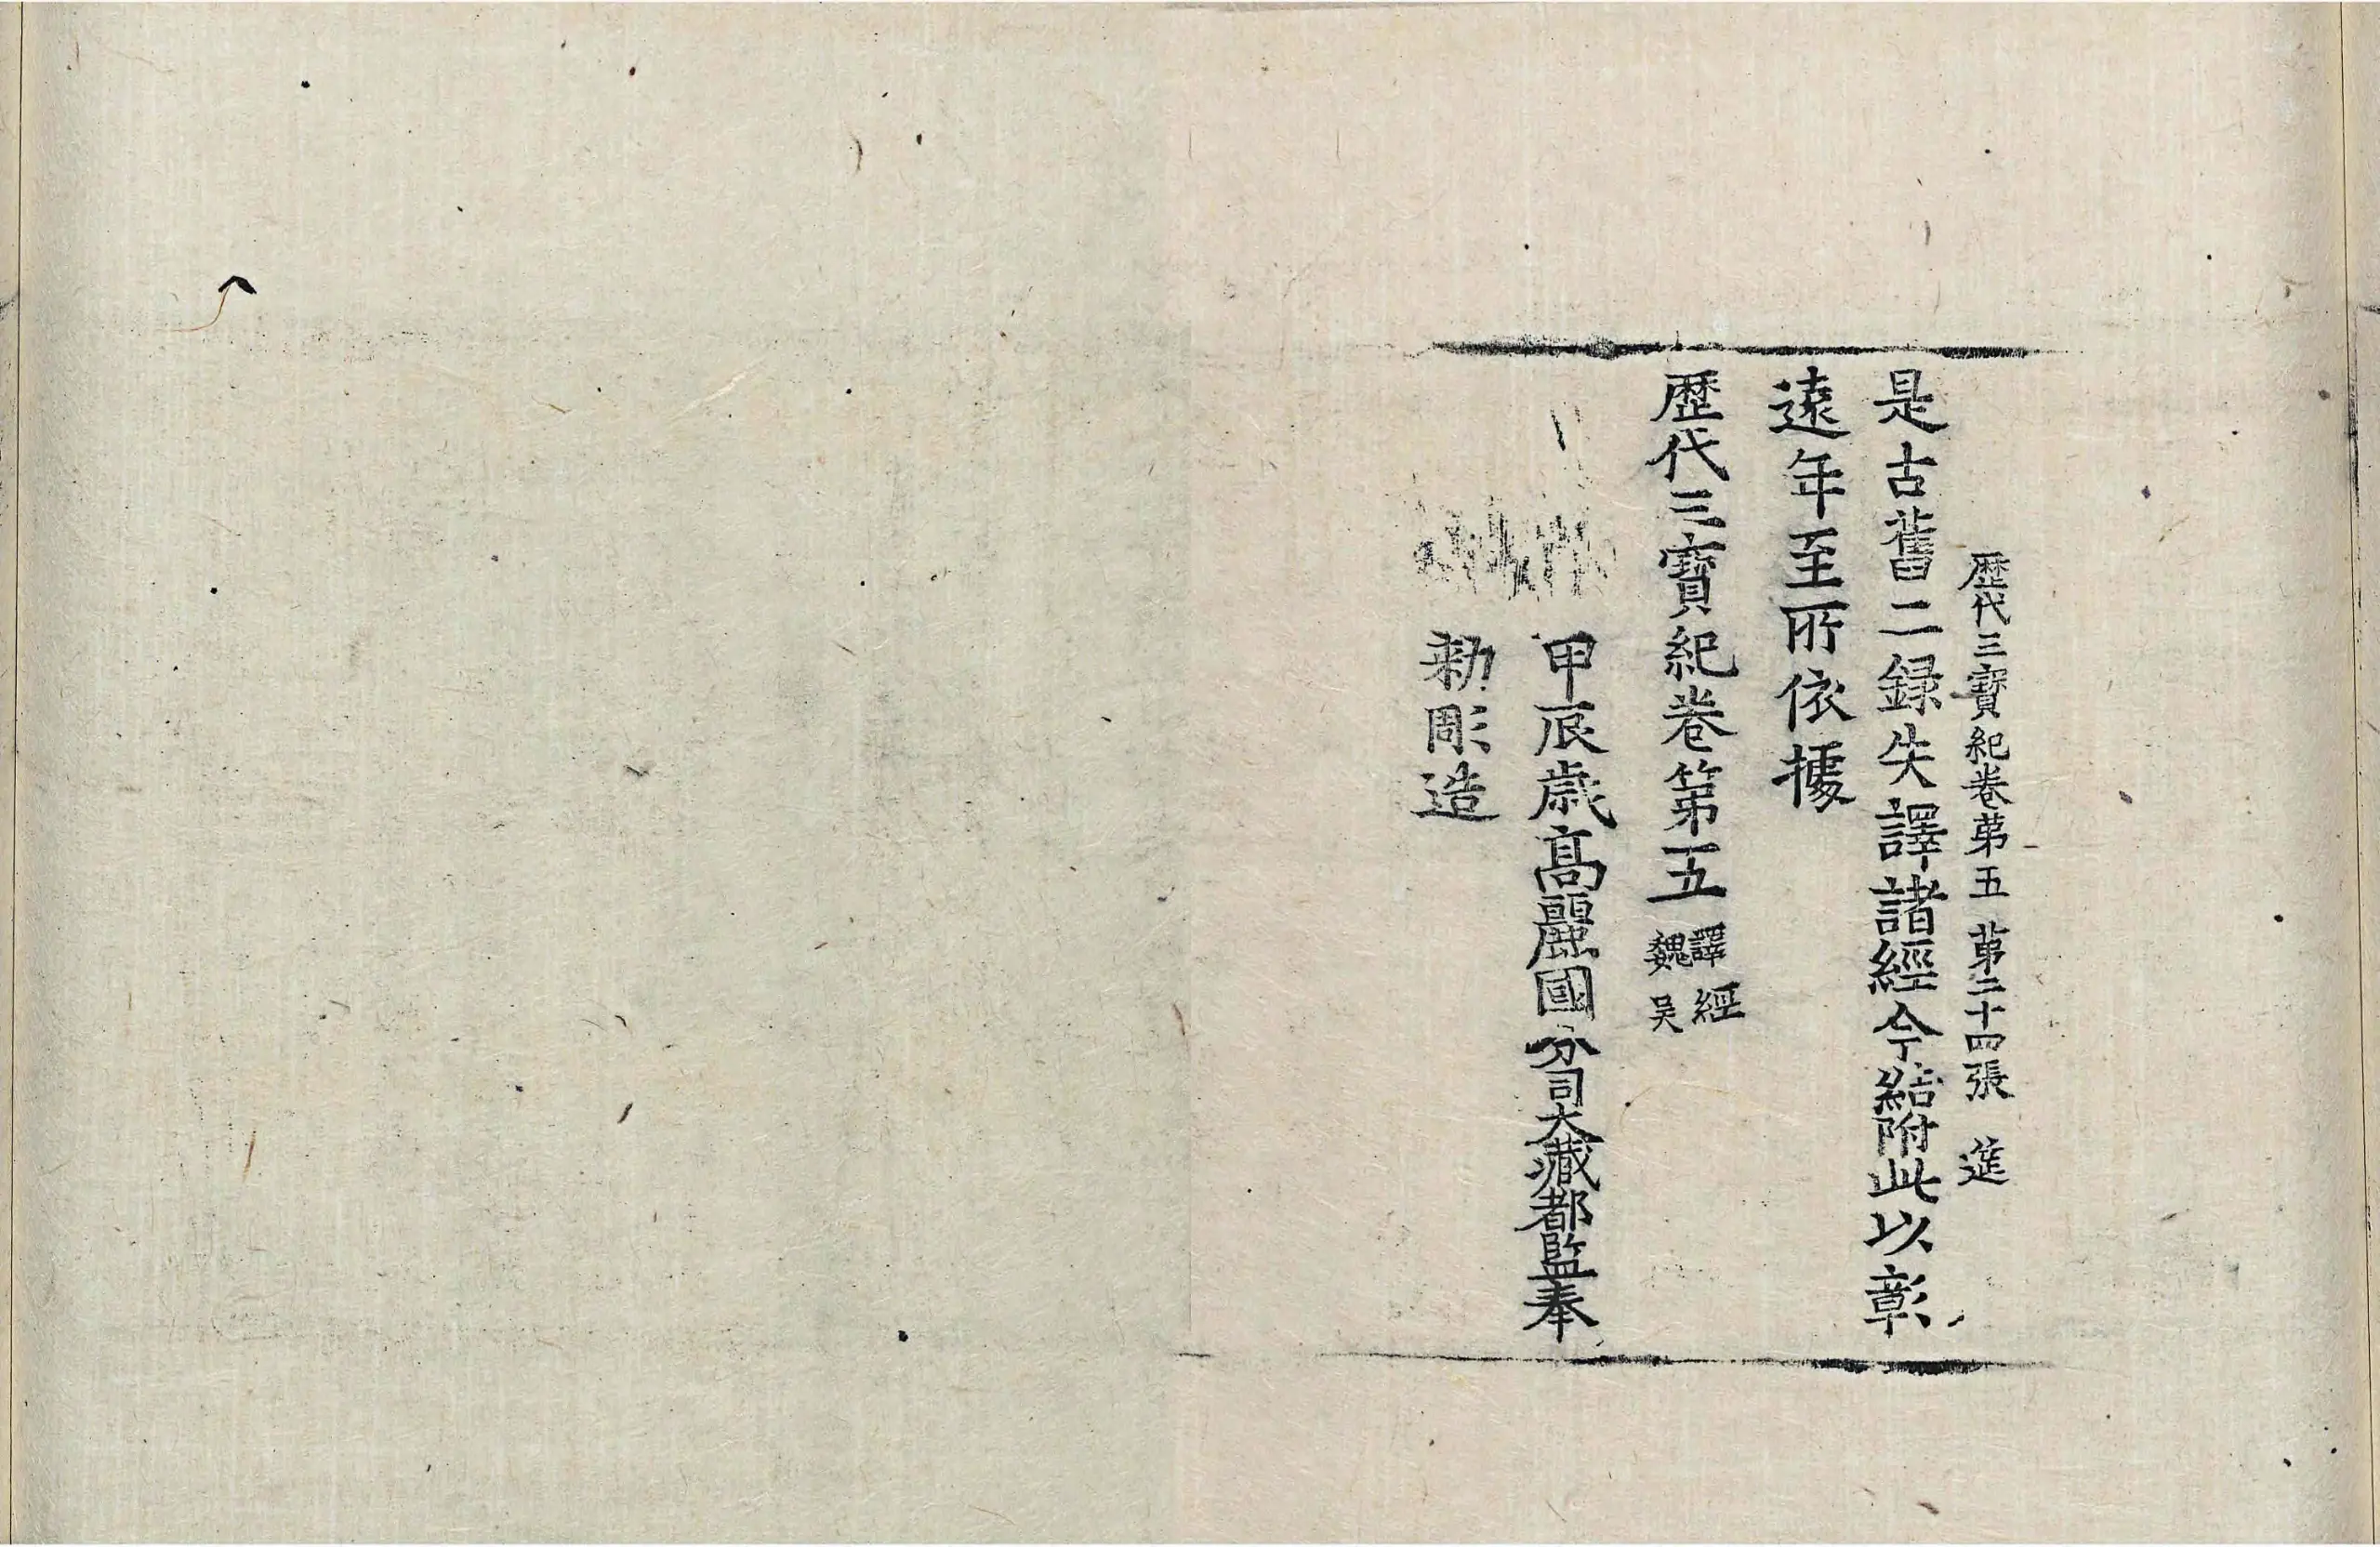 歷代三寶紀卷第五 第二十四張 進
是古舊二録失譯諸經今結附此以彰
遠年至所依據
歷代三寶紀卷第五 譯經魏吳
甲辰歲高麗國分司大藏都監奉
勑彫造